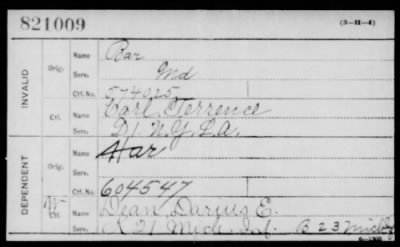 821009 (3-11-4)
INVALID
Orig. Name Bar
Serv. Md
Ctf. No. 574025
Ctf. Name Carl, Terrence
Serv. D, 1, N.Y. L.A.
DEPENDENT
Orig. Name Har
Serv.
Ctf. No. 604547
W Ctf. Name Dean, Darius E.
Serv. K 21 Mich. Inf. B 23 Mich
6—1308